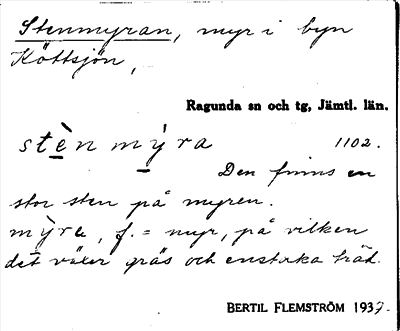 Stenmyran, myr i byn
Köttsjön,
Ragunda sn och tg, Jämtl. län.
stè̱n mỳ̱ra 1102.
Den finns en
stor sten på myren.
mỳra, f. = myr, på vilken
det växer gräs och enstaka träd.
BERTIL FLEMSTRÖM 1937.